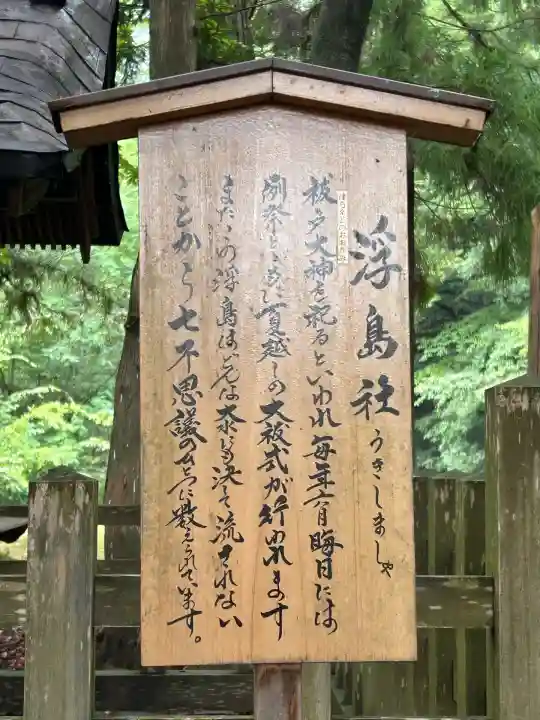 浮島社 うきしましゃ
祓戸大神を祀るといわれ毎年六月晦日には
例祭と
夏越しの大祓式が行われます
またこの浮島はどんな大水でも決して流されない
ことから七不思議の一つに数えられています。